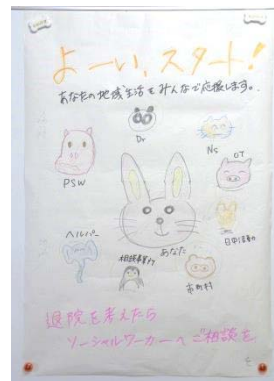 よーい,スタート!
あなたの地域生活をみんなで応援します。
Dr
Ns
OT
PSW
日中活動
ヘルパー
あなた
相談事業所
市町村
退院を考えたら
ソーシャルワーカーへご相談を